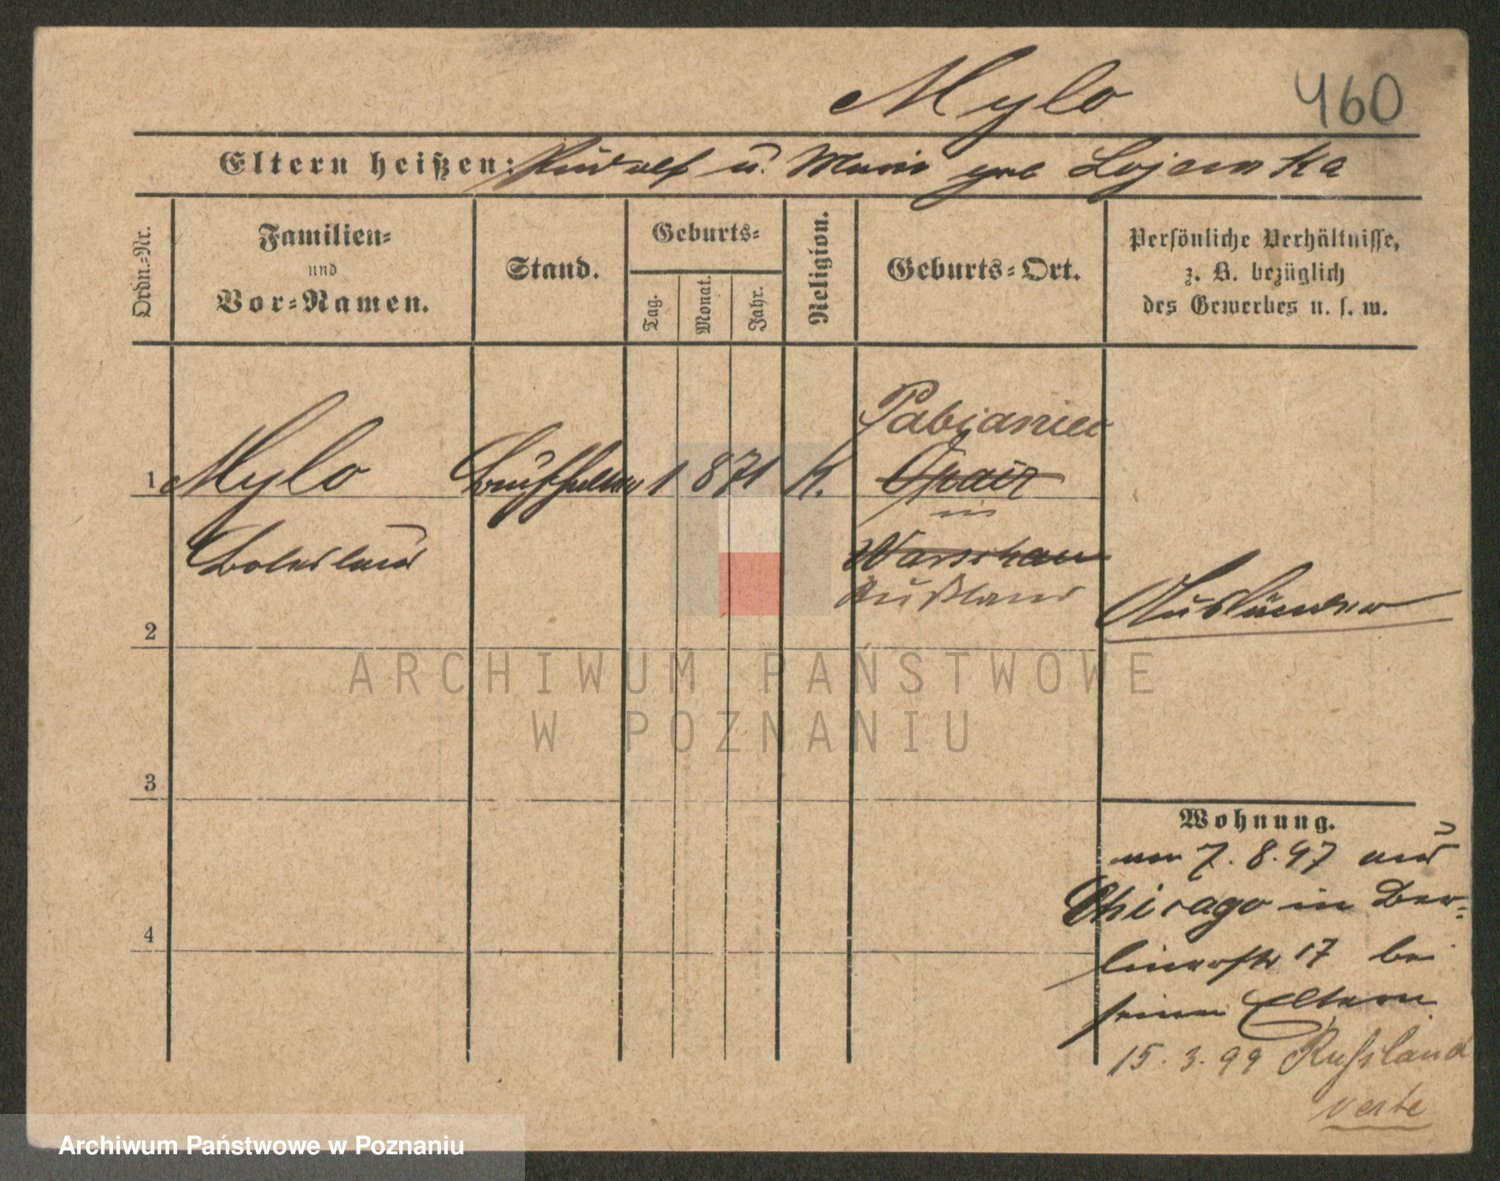 Mylo 460
Eltern heißen: Rudolf u. Maria geb Lojewska
Ordn.-Nr.
Familien-
und
Vor-Namen.
Stand.
Geburts-
Tag.
Monat.
Jahr.
Religion.
Geburts-Ort.
Persönliche Verhältnisse,
z. B. bezüglich
des Gewerbes u. s. w.
Pabianice
1 Mylo 1 871 K.
in
Boleslaus
Warschau
Rußland
Ausländer
2
ARCHIWUM PAŃSTWOWE
W POZNANIU
3
Wohnung.
am 7. 8. 97 aus
Chicago in Ber-
linerstr 17 bei
seinen Eltern.
4
15. 3. 99 Russland
verte
Archiwum Państwowe w Poznaniu